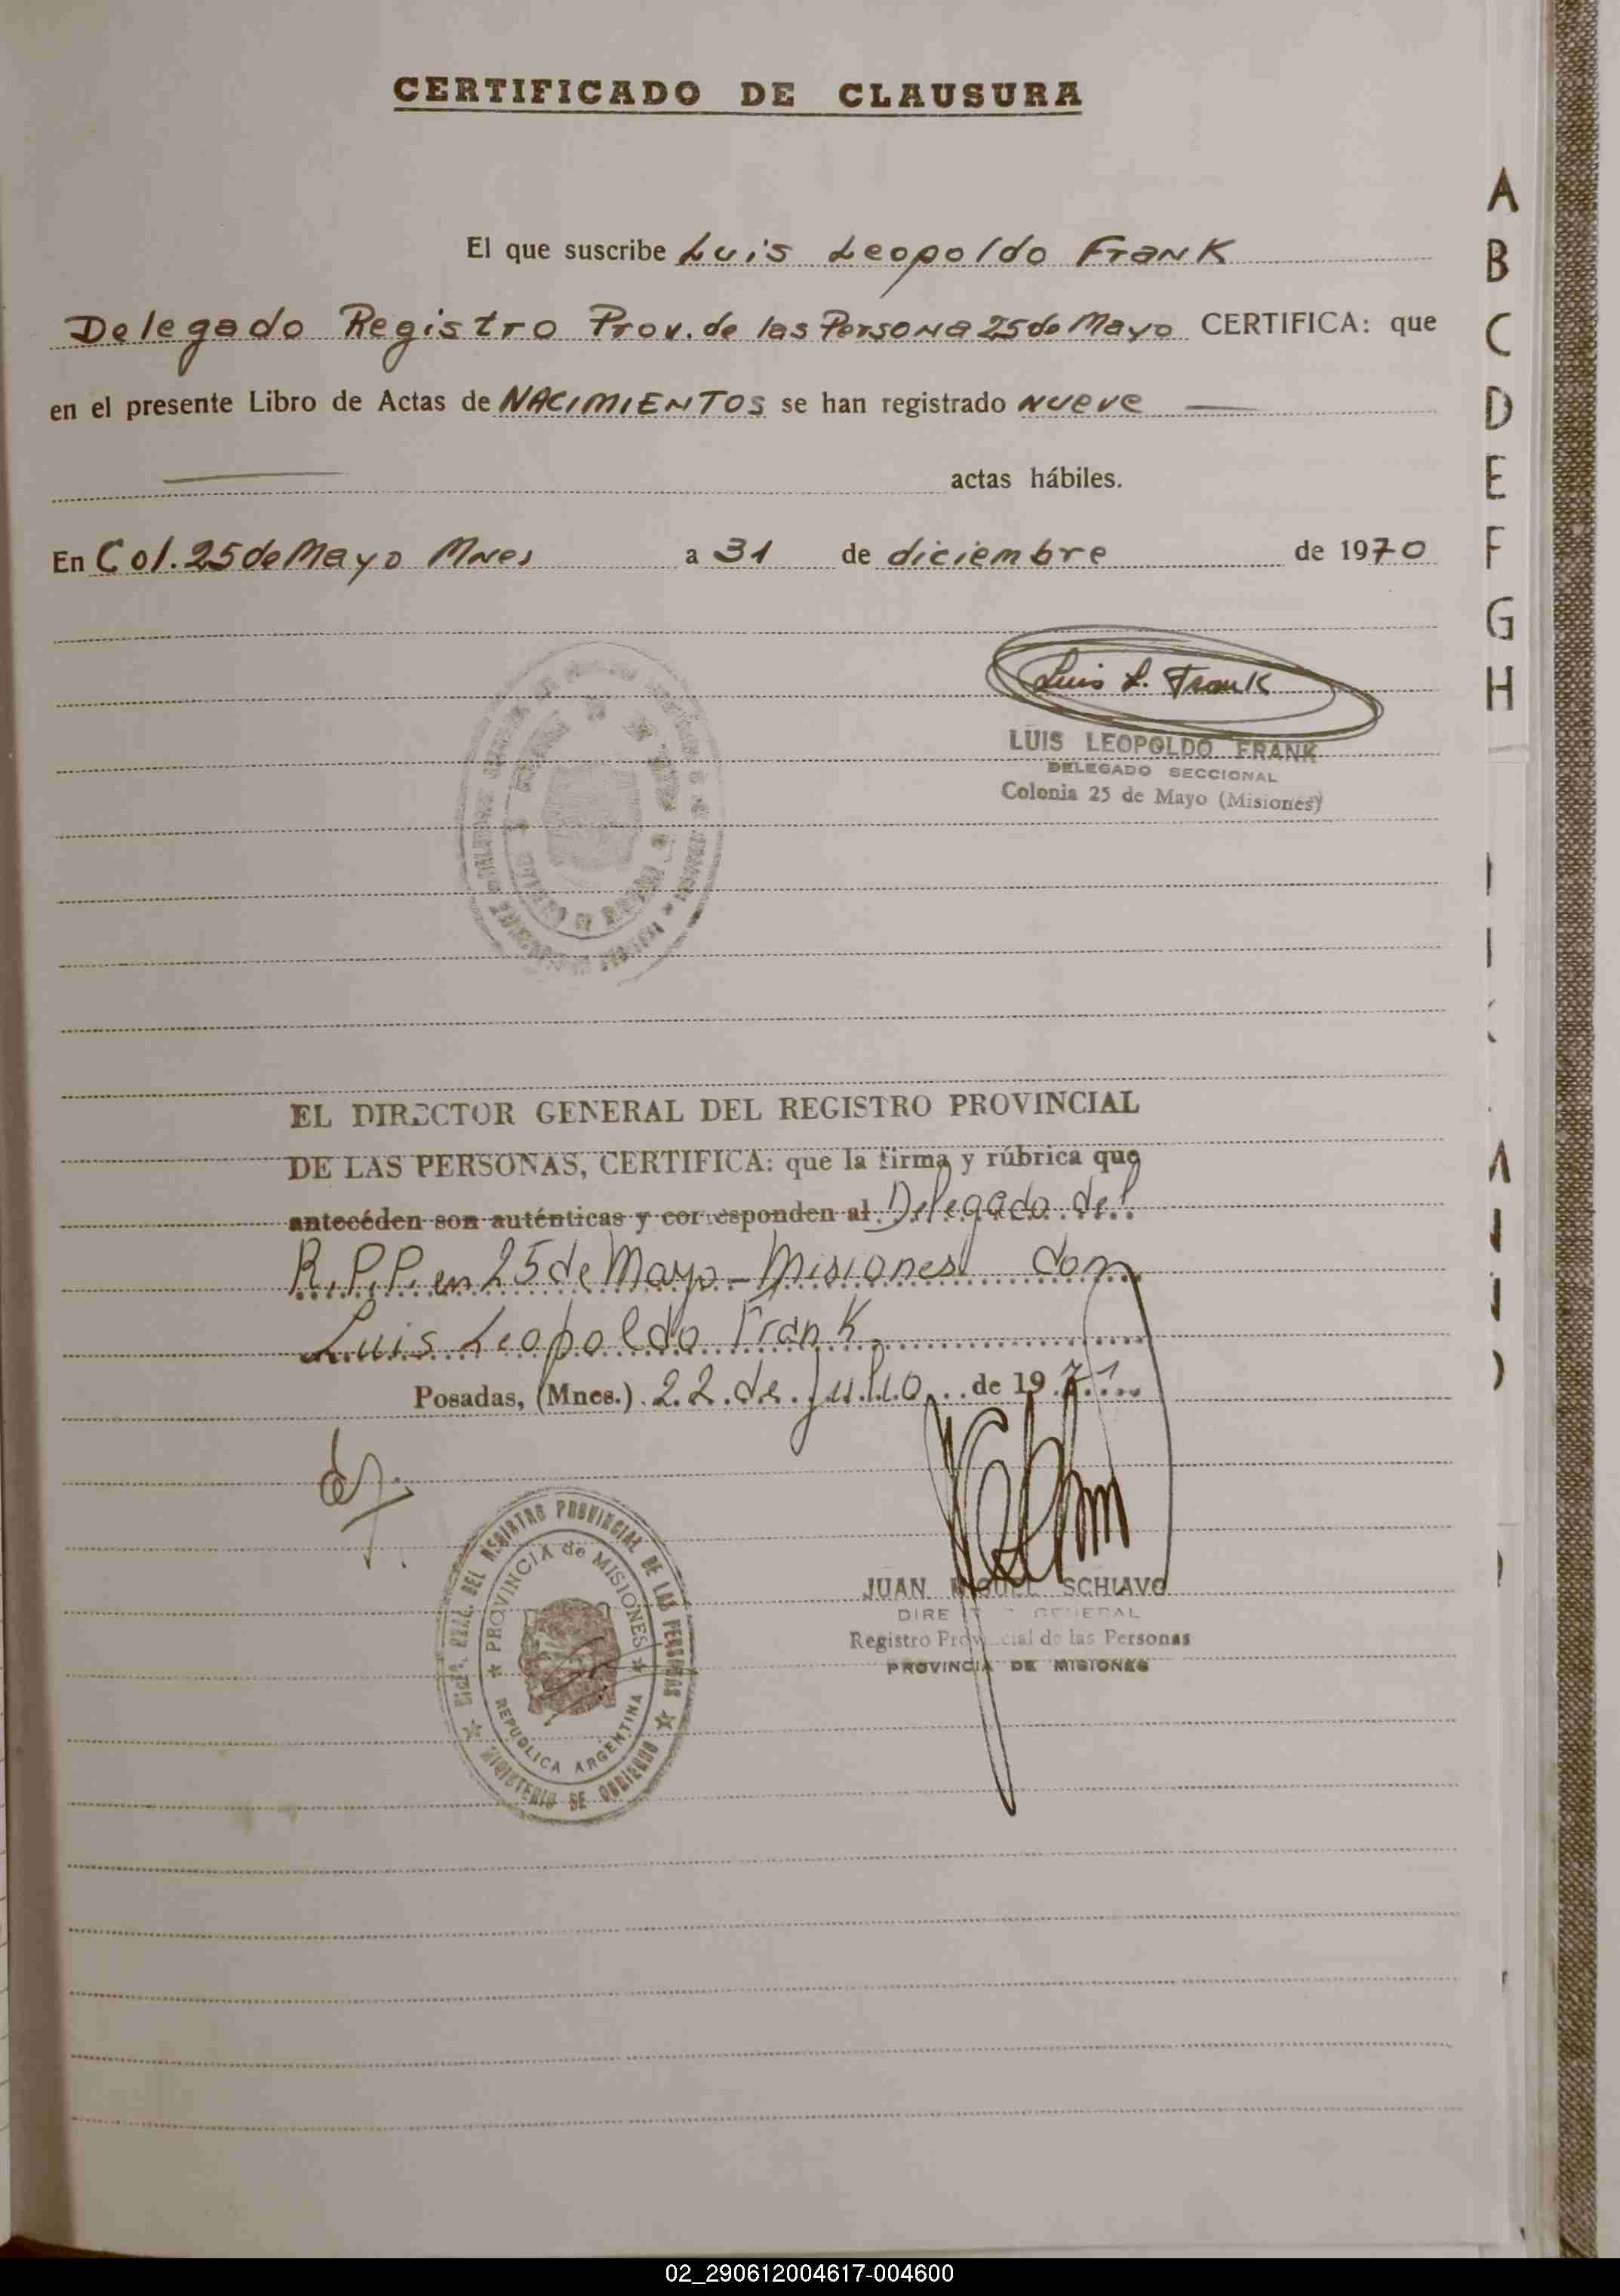 CERTIFICADO DE CLAUSURA
El que suscribe Luis Leopoldo Frank
Delegado Registro Prov. de las Persona 25 de Mayo CERTIFICA: que
en el presente Libro de Actas de NACIMIENTOS se han registrado nueve
actas hábiles.
En Col. 25 de Mayo Mnes a 31 de diciembre de 1970
Luis L. Frank
LUIS LEOPOLDO FRANK
DELEGADO SECCIONAL
Colonia 25 de Mayo (Misiones)
EL DIRECTOR GENERAL DEL REGISTRO PROVINCIAL
DE LAS PERSONAS, CERTIFICA: que la firma y rúbrica que
antecéden son auténticas y corresponden al Delegado del
R.P.P. en 25 de Mayo - Misiones don
Luis Leopoldo Frank
Posadas, (Mnes.) 22 de Julio de 1971
JUAN MIGUEL SCHIAVO
DIRECTOR GENERAL
Registro Provincial de las Personas
PROVINCIA DE MISIONES
DEL REGISTRO PROVINCIAL DE LAS PERSONAS
MINISTERIO DE GOBIERNO
PROVINCIA de MISIONES
REPUBLICA ARGENTINA
A
B
C
D
E
F
G
H
02_290612004617-004600